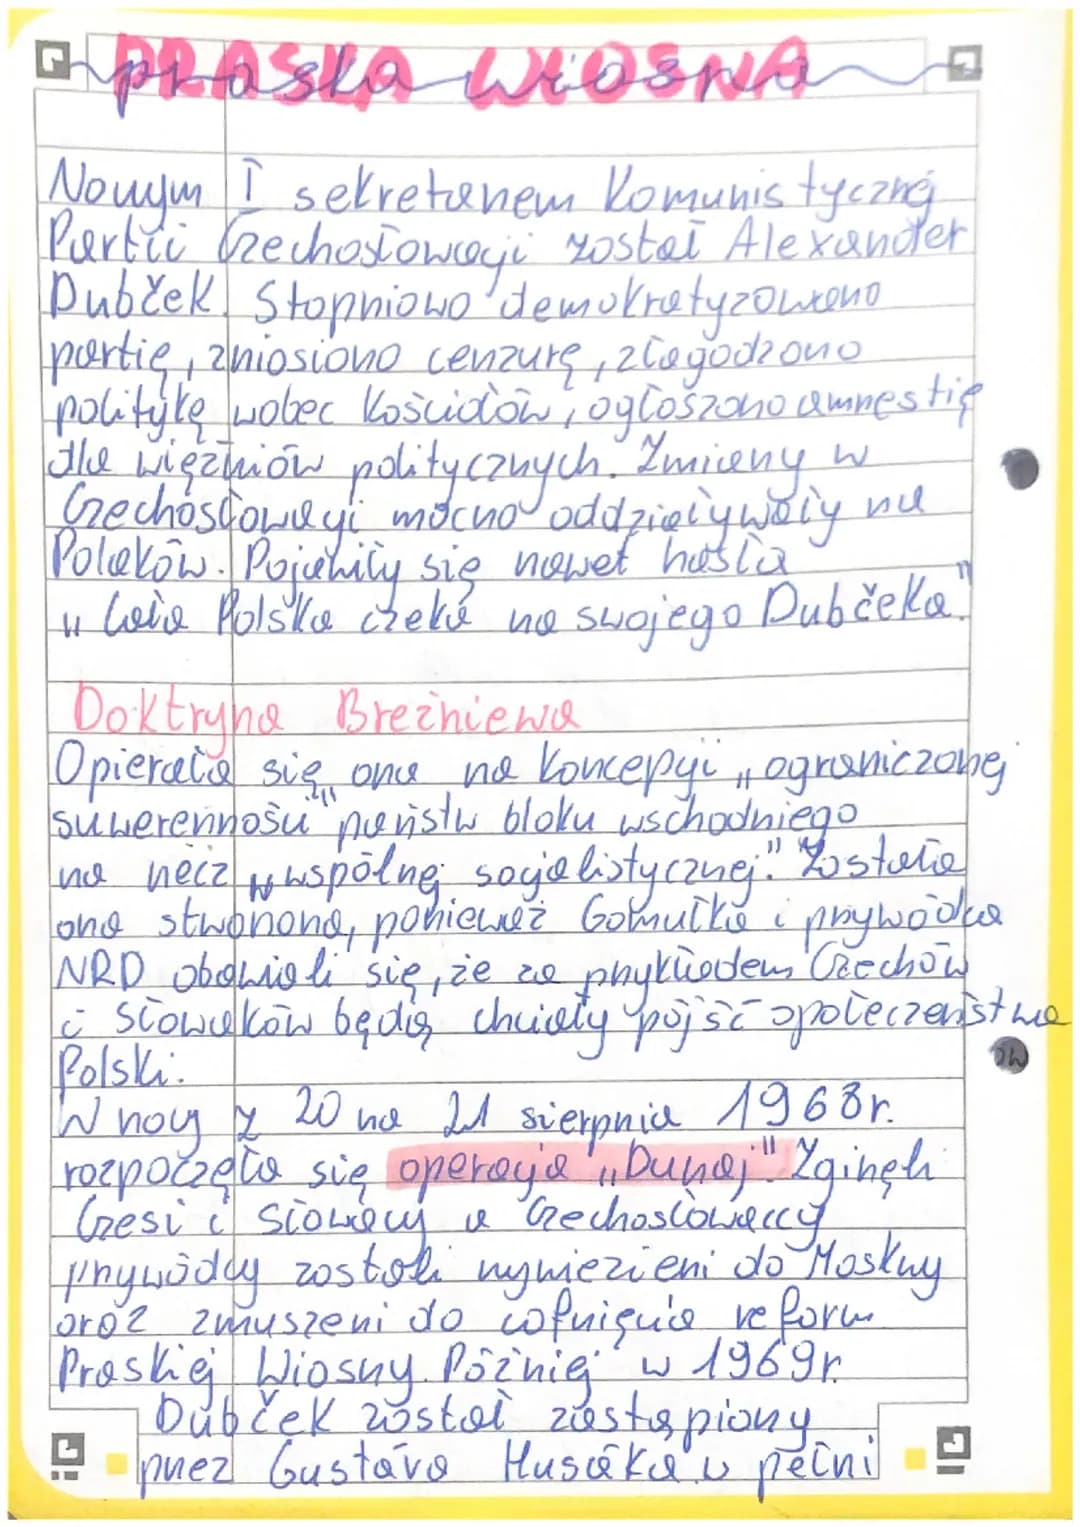 PRASKA WIOSNA
praska wiosna
Nowym I sekretarzem Komunistycznej
Partii Czechosłowacji został Alexander
Dubček. Stopniowo demokratyzowano
partię, zniosiono cenzurę, złagodzono
politykę wobec Kościołów, ogłoszono amnestię
dla więźniów politycznych. Zmiany w
Czechosłowacji mocno oddziaływały na
Polaków. Pojawiły się nawet hasła
"Cała Polska czeka na swojego Dubčeka."
Doktryna Breżniewa
Opierała się ona na koncepcji "ograniczonej
suwerenności" państw bloku wschodniego
na rzecz "wspólnej socjalistycznej." Została
ona stworzona, ponieważ Gomułka i przywódca
NRD obawiali się, że za przykładem Czechów
i Słowaków będą chciały pójść społeczeństwa
Polski.
W nocy z 20 na 21 sierpnia 1968r.
rozpoczęła się operacja "Dunaj." Zginęli
Czesi i Słowacy a Czechosłowaccy
przywódcy zostali wywiezieni do Moskwy
oraz zmuszeni do cofnięcia reform
Praskiej Wiosny. Później w 1969r.
Dubček został zastąpiony
przez Gustáva Husáka w pełni